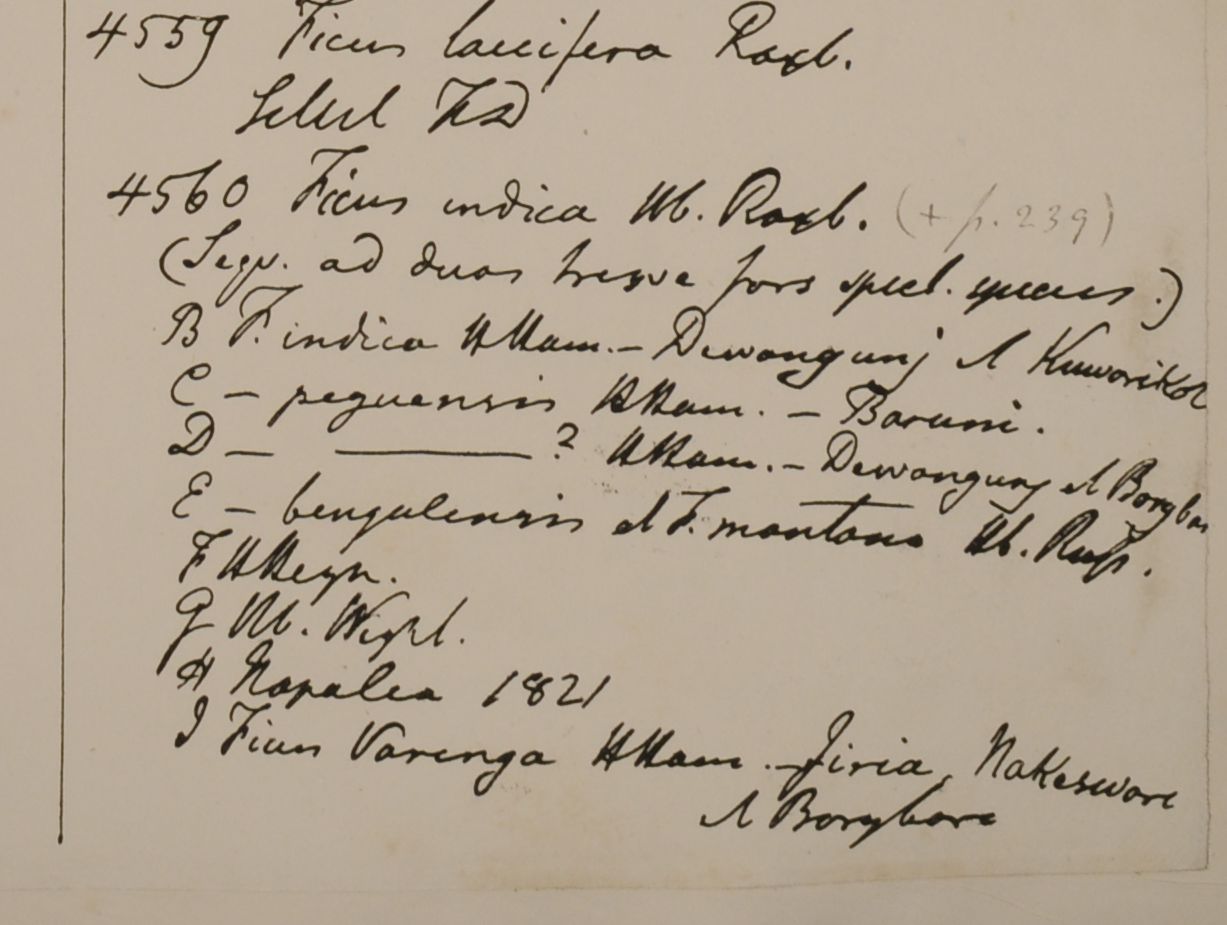 4559 Ficus laccifera Roxb.
Silhet FD
4560 Ficus indica Hb. Roxb. (+ p. 239)
(Sequ. ad duas tresve fors spect. species.)
B F. indica HHam. - Dewangunj et Kuwarikot
C - peguensis HHam. - Baruni.
D - ——? HHam. - Dewangunj et Borgbar
E - bengalensis et F. montana Hb.
F HHeyn.
G Hb. Wight.
H Napalea 1821
I Ficus Varenga HHam. - Jiria, Nakeswore
et Borgbare